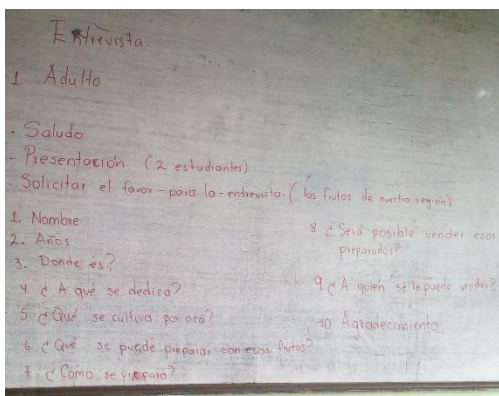 Entrevista
1 Adulto
- Saludo
- Presentación (2 estudiantes)
- Solicitar el favor - para la - entrevista. (los frutos de nuestra región)
1. Nombre
2. Años
3. Donde es?
4. ¿A qué se dedica?
5. ¿Qué se cultiva por acá?
6. ¿Qué se puede preparar con esos frutos?
7. ¿Como se prepara?
8. ¿Será posible vender esos
preparados?
9. ¿A quién se le puede vender?
10 Agradecimiento